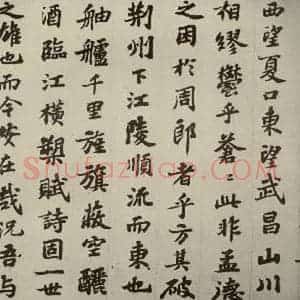 西望夏口東望武昌山川
相繆鬱乎蒼〻此非孟德
之困於周郎者乎方其破
荊州下江陵順流而東也
舳艫千里旌旗蔽空釃
酒臨江橫槊賦詩固一世
之雄也而今安在哉況吾與